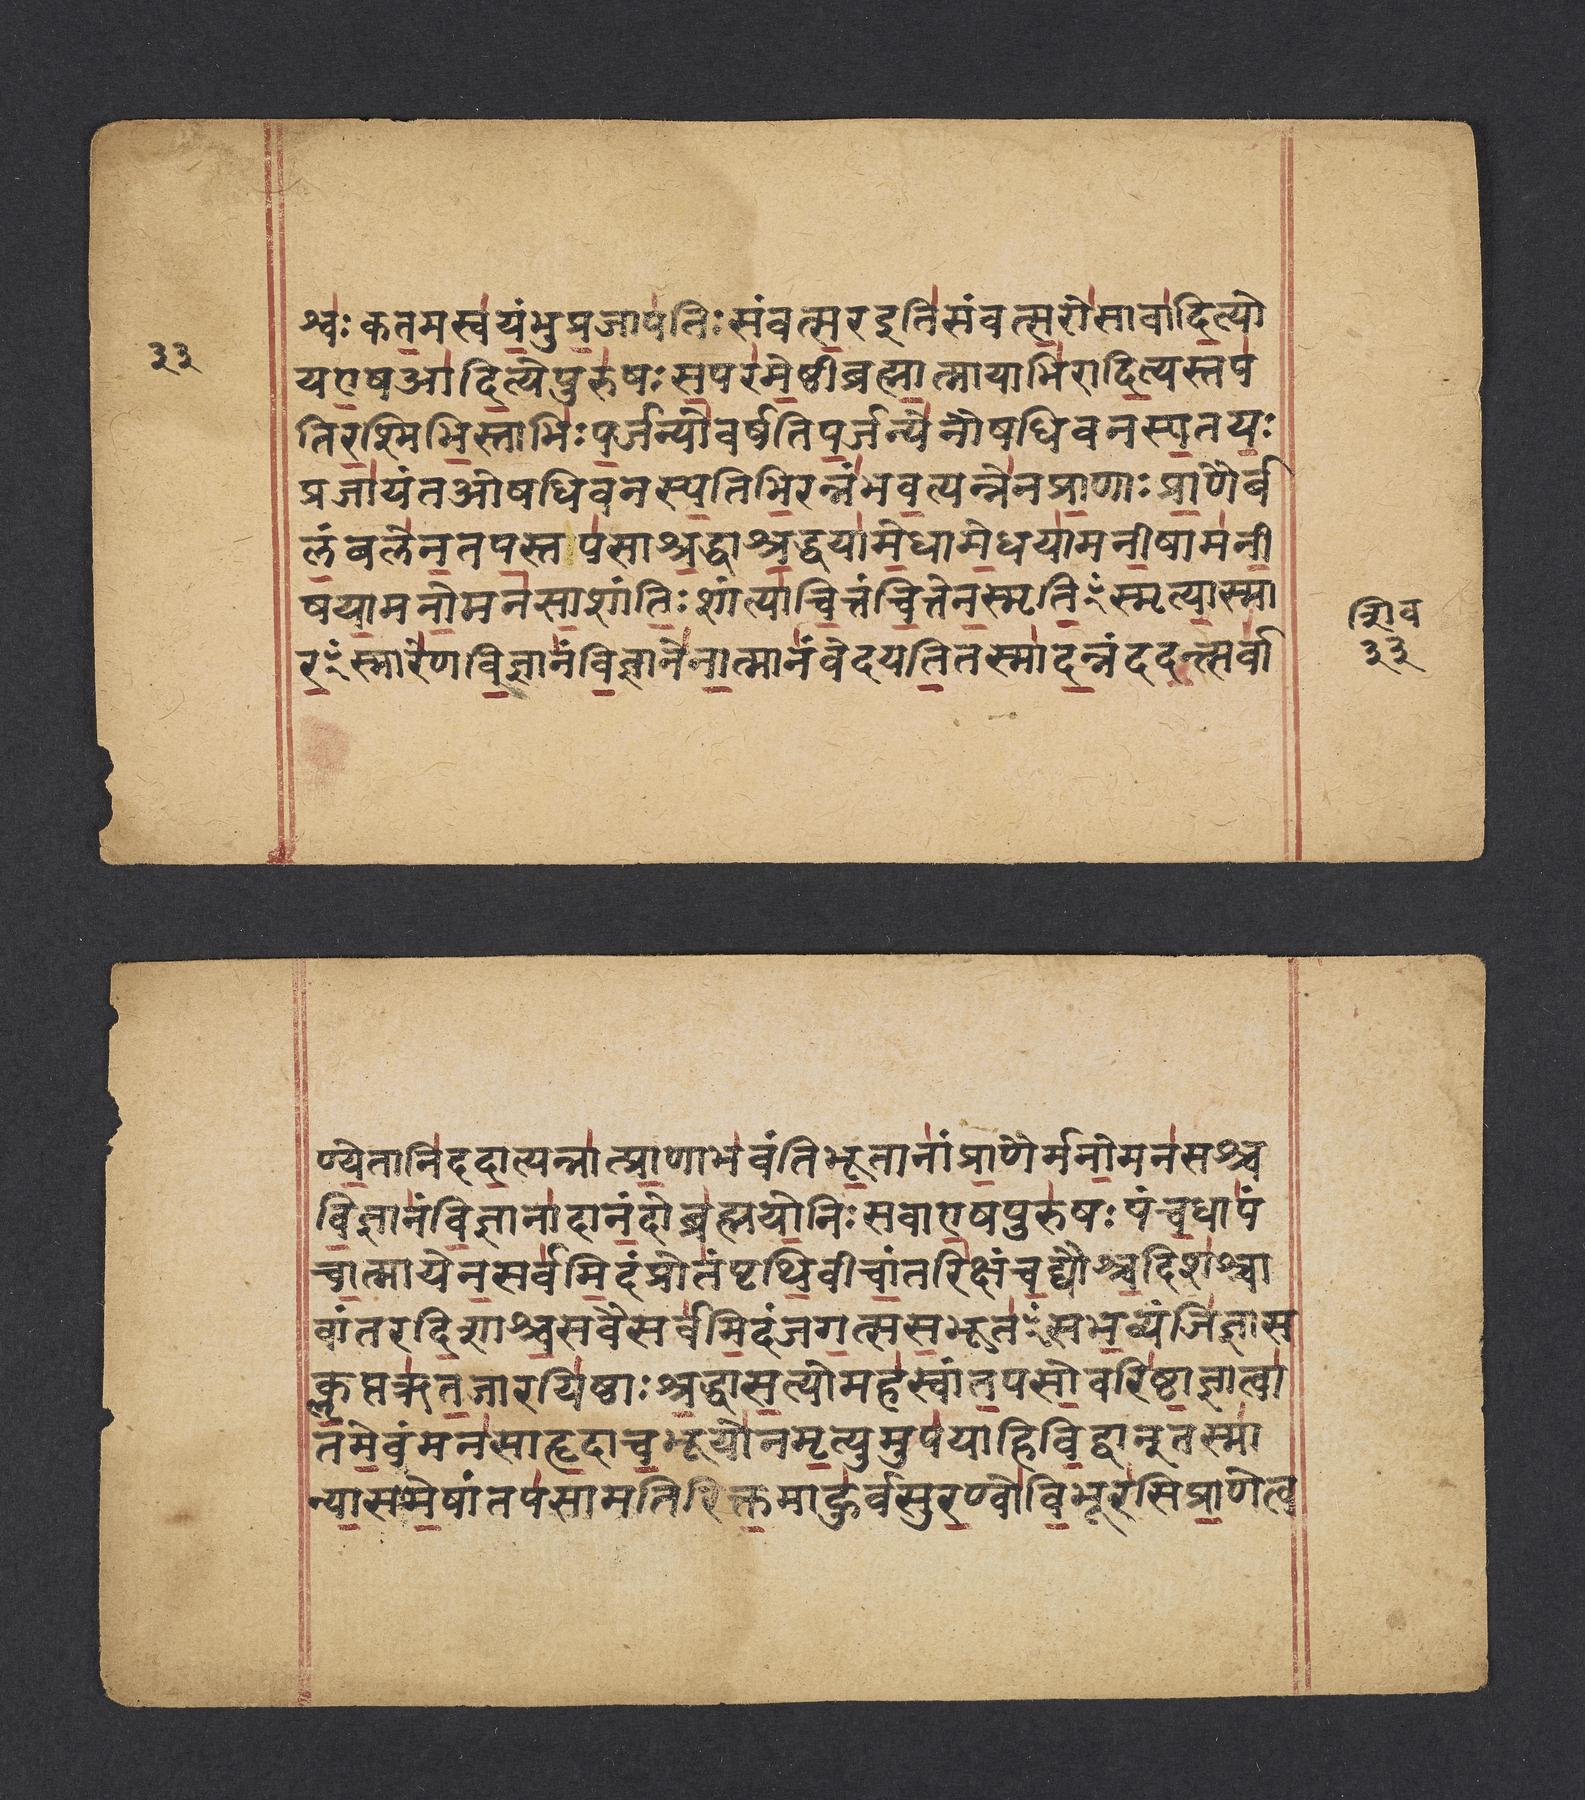 श्वः कतमस्वयंभु प्रजापतिः संवत्सर इति संवत्सरो सावादित्यो
३३
य एष आदित्ये पुरुषः स परमेष्ठी ब्रह्मात्मा याभिरादित्यस्तप
ति रश्मिभिस्ताभिः पर्जन्यो वर्षति पर्जन्येनौषधिवनस्पतयः
प्रजायंत ओषधिवनस्पतिभिरन्नं भवत्यन्नेन प्राणाः प्राणैर्ब
लं बलेन तपस्तपसा श्रद्धा श्रद्धया मेधा मेधया मनीषा मनी
षया मनो मनसा शांतिः शांत्या चित्तं चित्तेन स्मृतिꣳ स्मृत्या स्मा
शिव
३३
रꣳ स्मारेण विज्ञानं विज्ञानेनात्मानं वेदयति तस्मादन्नं ददन्त्सर्वा
ण्येतानि ददात्यन्नात्प्राणा भवंति भूतानां प्राणैर्मनो मनसश्च
विज्ञानं विज्ञानादानंदो ब्रह्मयोनिः स वा एष पुरुषः पंचधा पं
चात्मा येन सर्वमिदं प्रोतं पृथिवी चांतरिक्षं च द्यौश्च दिशश्चा
वांतरदिशाश्च स वै सर्वमिदं जगत्स स भूतꣳ स भव्यं जिज्ञास
क्लृप्त ऋतजा रयिष्ठाः श्रद्धा सत्यो महस्वांतपसो वरिष्ठा ज्ञात्वा
तमेवं मनसा हृदा च भूयो न मृत्युमुपयाहि विद्वानूतस्मा
न्यासमेषां तपसामतिरिक्तमाहुर्वसुरण्वो विभूरसि प्राणे त्व